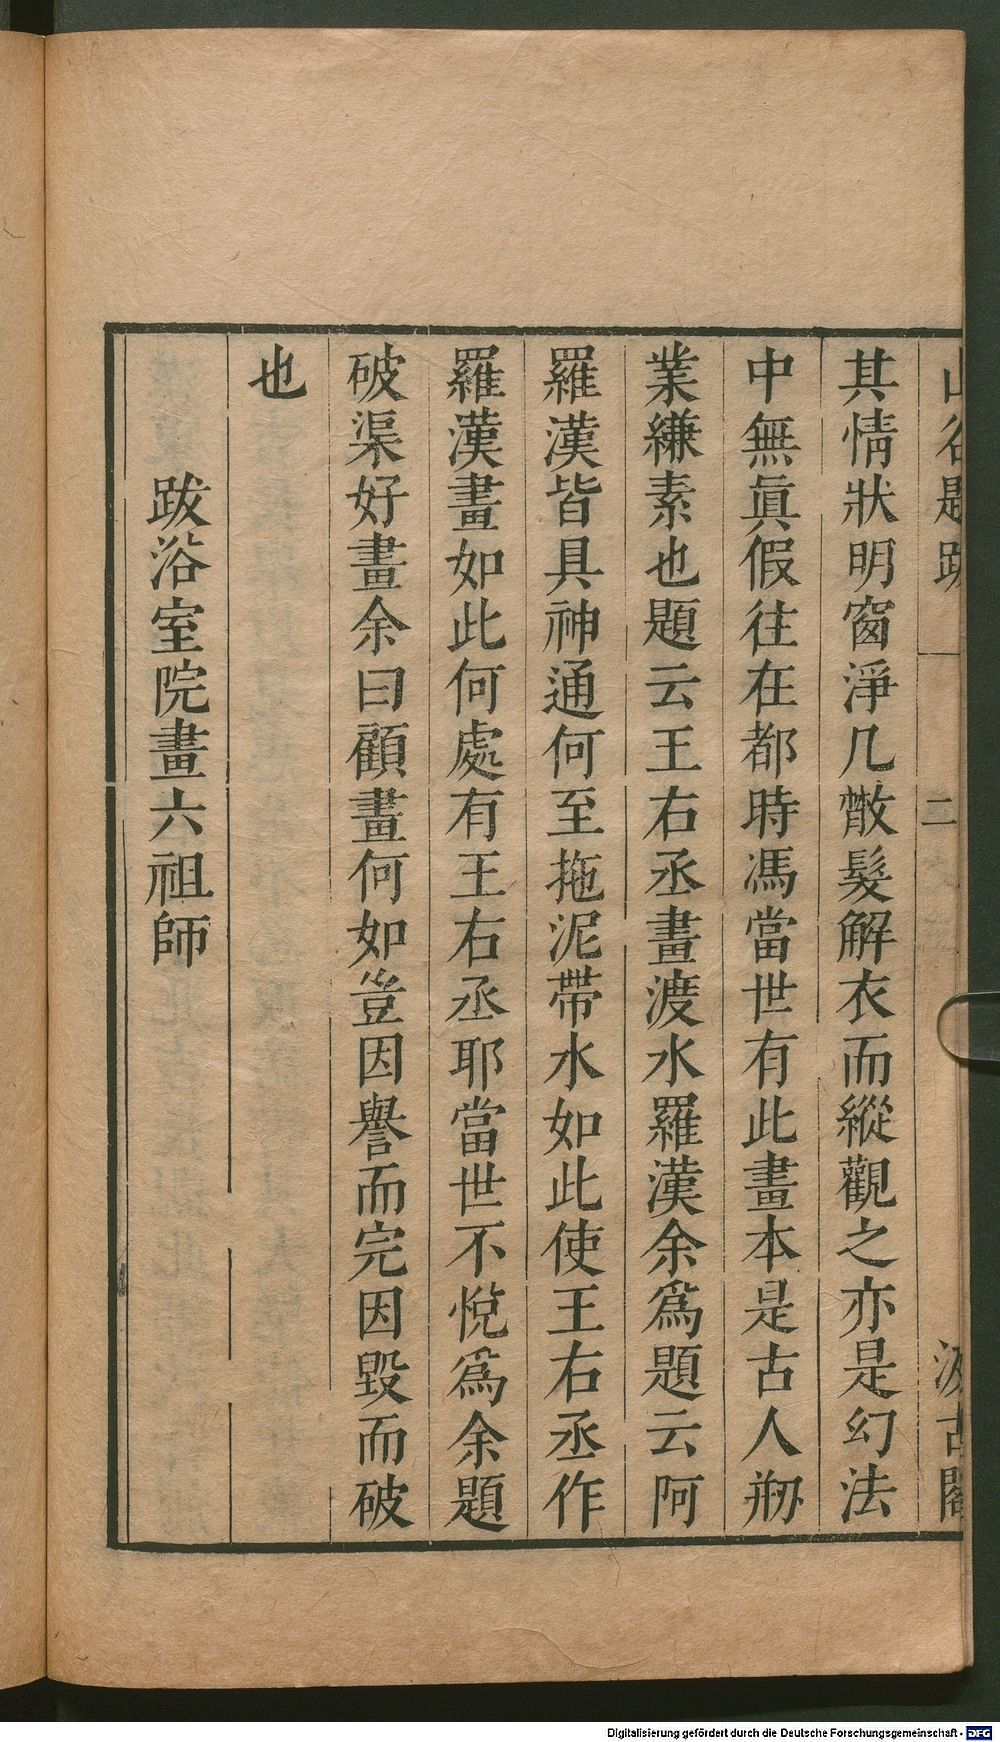 山谷題跋
二
汲古閣
其情狀明窗淨几散髮解衣而縱觀之亦是幻法
中無眞假往在都時馮當世有此畫本是古人粉
業縑素也題云王右丞畫渡水羅漢余爲題云阿
羅漢皆具神通何至拖泥帶水如此使王右丞作
羅漢畫如此何處有王右丞耶當世不悅爲余題
破渠好畫余曰顧畫何如豈因譽而完因毀而破
也
跋浴室院畫六祖師
Digitalisierung gefördert durch die Deutsche Forschungsgemeinschaft - DFG